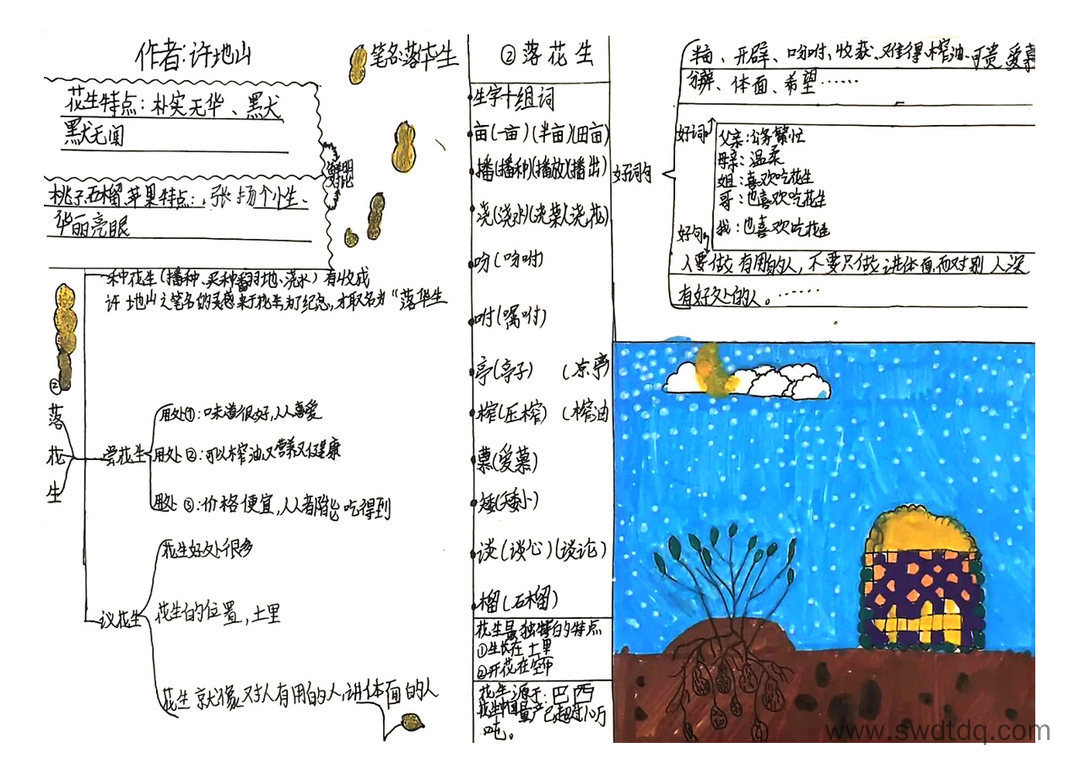 作者:许地山
笔名:落华生
花生特点:朴实无华、默
默无闻
鲜明
对比
桃子、石榴、苹果特点:,张扬个性、
华丽亮眼
种花生(播种、买种、翻地、浇水)有收成
许地山之笔名的灵感来于
才取名为"落华生
②落花生
尝花生
用处①:味道很好,人人喜爱
用处②:可以榨油,又营养又健康
用处③:价格便宜,人人都能吃得到
议花生
花生好处很多
花生的位置,土里
花生就像对人有用的人,讲体面的人
②落花生
生字十组词
亩(一亩)(半亩)(田亩)
播(播种)(播放)(播出)
浇(浇水)(浇菜)(浇花)
吩(吩咐)
咐(嘱咐)
亭(亭子)(凉亭
榨(压榨)(榨油
慕(爱慕)
矮(矮小)
谈(谈心)(谈论)
榴(石榴)
花生最独特的特点
①生长在土里
②开花在空中
花生源于:巴西
吨。
好词句
好词
半亩、开辟、吩咐、收获、难得、榨油、可贵、爱慕
分辨、体面、希望……
父亲:公务繁忙
母亲:温柔
姐:喜欢吃花生
哥:也喜欢吃花生
我:也喜欢吃花生
好句
人要做有用的人,不要只做讲体面,而对别人没
有好处的人。……
www.swdtdq.com